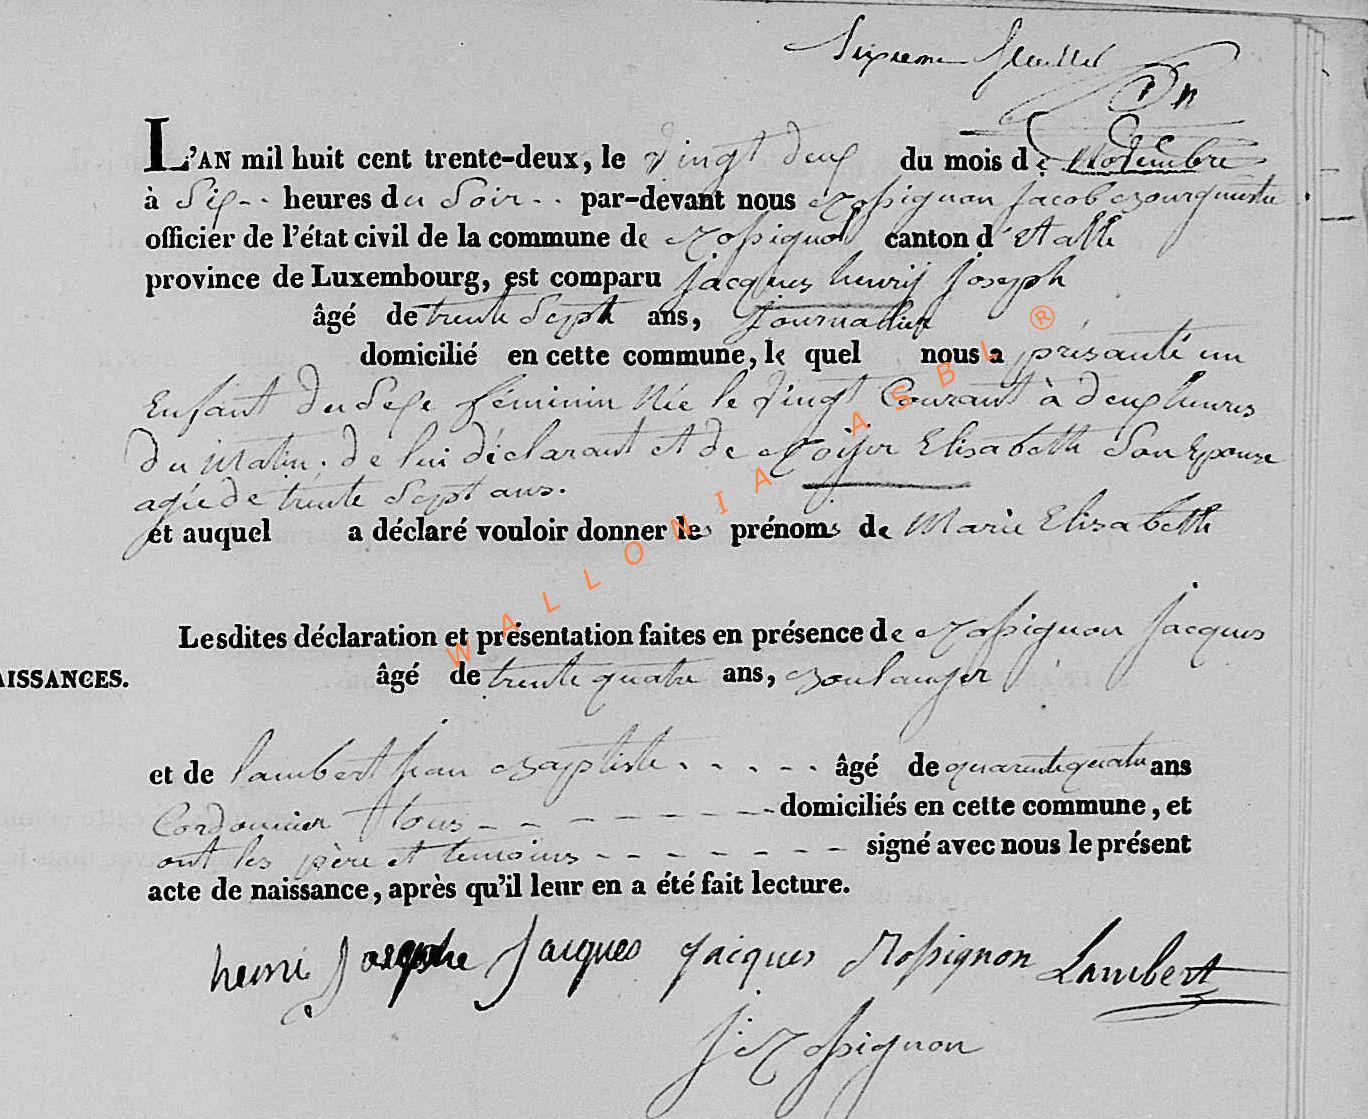 Sixieme feuillet
L'AN mil huit cent trente-deux, le vingt deux du mois de Novembre
à Six-- heures du Soir-- par-devant nous Rossignon Jacob Bourgmestre
officier de l'état civil de la commune de Rossignol canton d'Etalle
province de Luxembourg, est comparu Jacques henrij Joseph
âgé de trente Sept ans, Journallier
domicilié en cette commune, le quel nous a présanté un
Enfant du Sexe féminin Née le Vingt Courant à deux heures
du Matin. de lui déclarant et de Roijer Elisabeth Son Epouse
agée de trente Sept ans.
et auquel a déclaré vouloir donner les prénoms de Marie Elisabeth
Lesdites déclaration et présentation faites en présence de Rossignon Jacques
AISSANCES. âgé de trente quatre ans, Boulanjer
et de lambert jean Baptiste - - - - - âgé de quarente quatre ans
Cordonnier tous - - - - - - - - domiciliés en cette commune, et
ont les père et temoins - - - - - - - signé avec nous le présent
acte de naissance, après qu'il leur en a été fait lecture.
henri Josephe Jacques Jacques Rossignon Lambert
J. Rossignon
WALLONIA ASBL ®